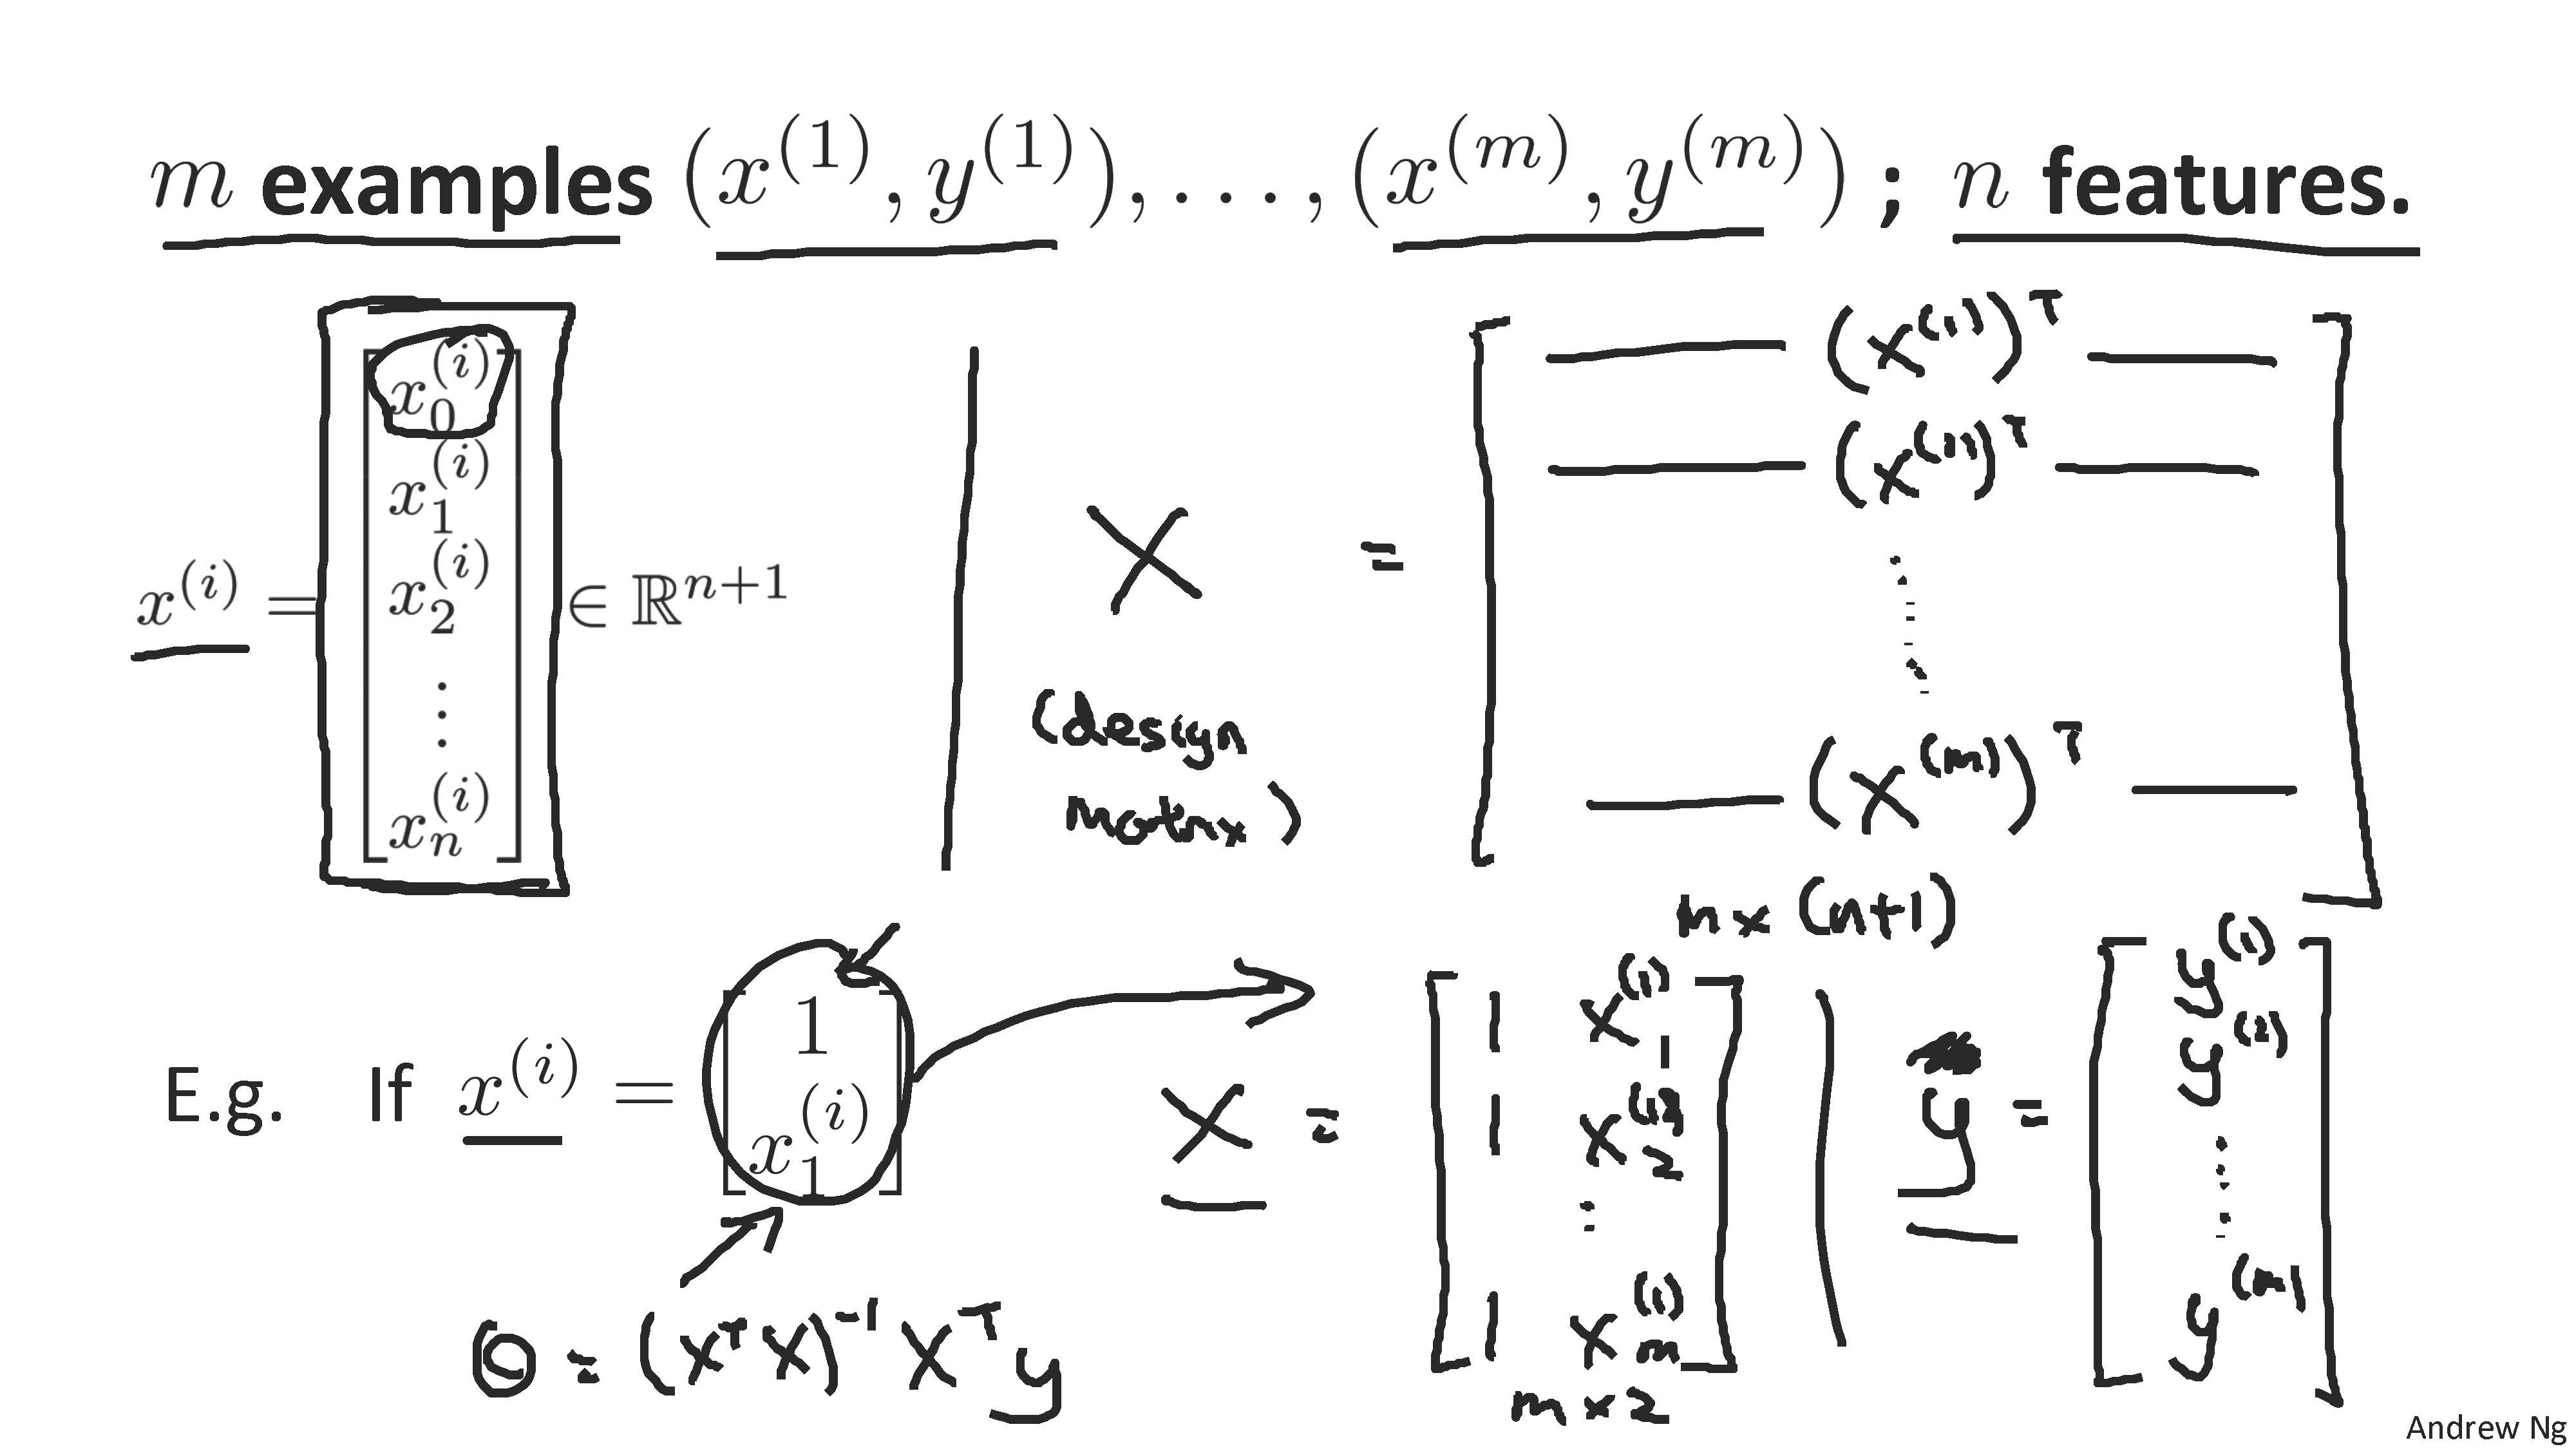 m examples (x^(1), y^(1)), . . . , (x^(m), y^(m)) ; n features.
x^(i) = [ x_0^(i)
x_1^(i)
x_2^(i)
⋮
x_n^(i) ] ∈ ℝ^{n+1}
X
(design
matrix)
= [ — (x^(1))^T —
— (x^(2))^T —
⋮
— (x^(m))^T — ]
m x (n+1)
E.g. If x^(i) = [ 1
x_1^(i) ]
X = [ 1 x_1^(1)
1 x_2
⋮
1 x_m^(1) ]
m x 2
y = [ y^(1)
y^(2)
⋮
y^(m) ]
θ = (X^T X)^-1 X^T y
Andrew Ng